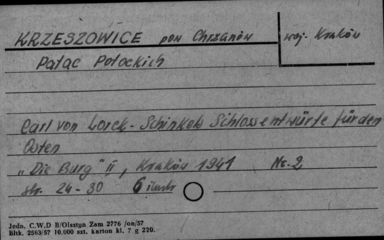 KRZESZOWICE pow Chrzanów
woj. Kraków
Pałac Potockich
Carl von Lorck - Schinkels Schlossentwürfe für den
Osten
„Die Burg" II, Kraków 1941 Nr. 2
str. 24-30 6 ilustr
Jedn. C.W.D B/Olsztyn Zam 2776 /on/57
Bltk. 2563/57 10.000 szt. karton kl. 7 g 220.